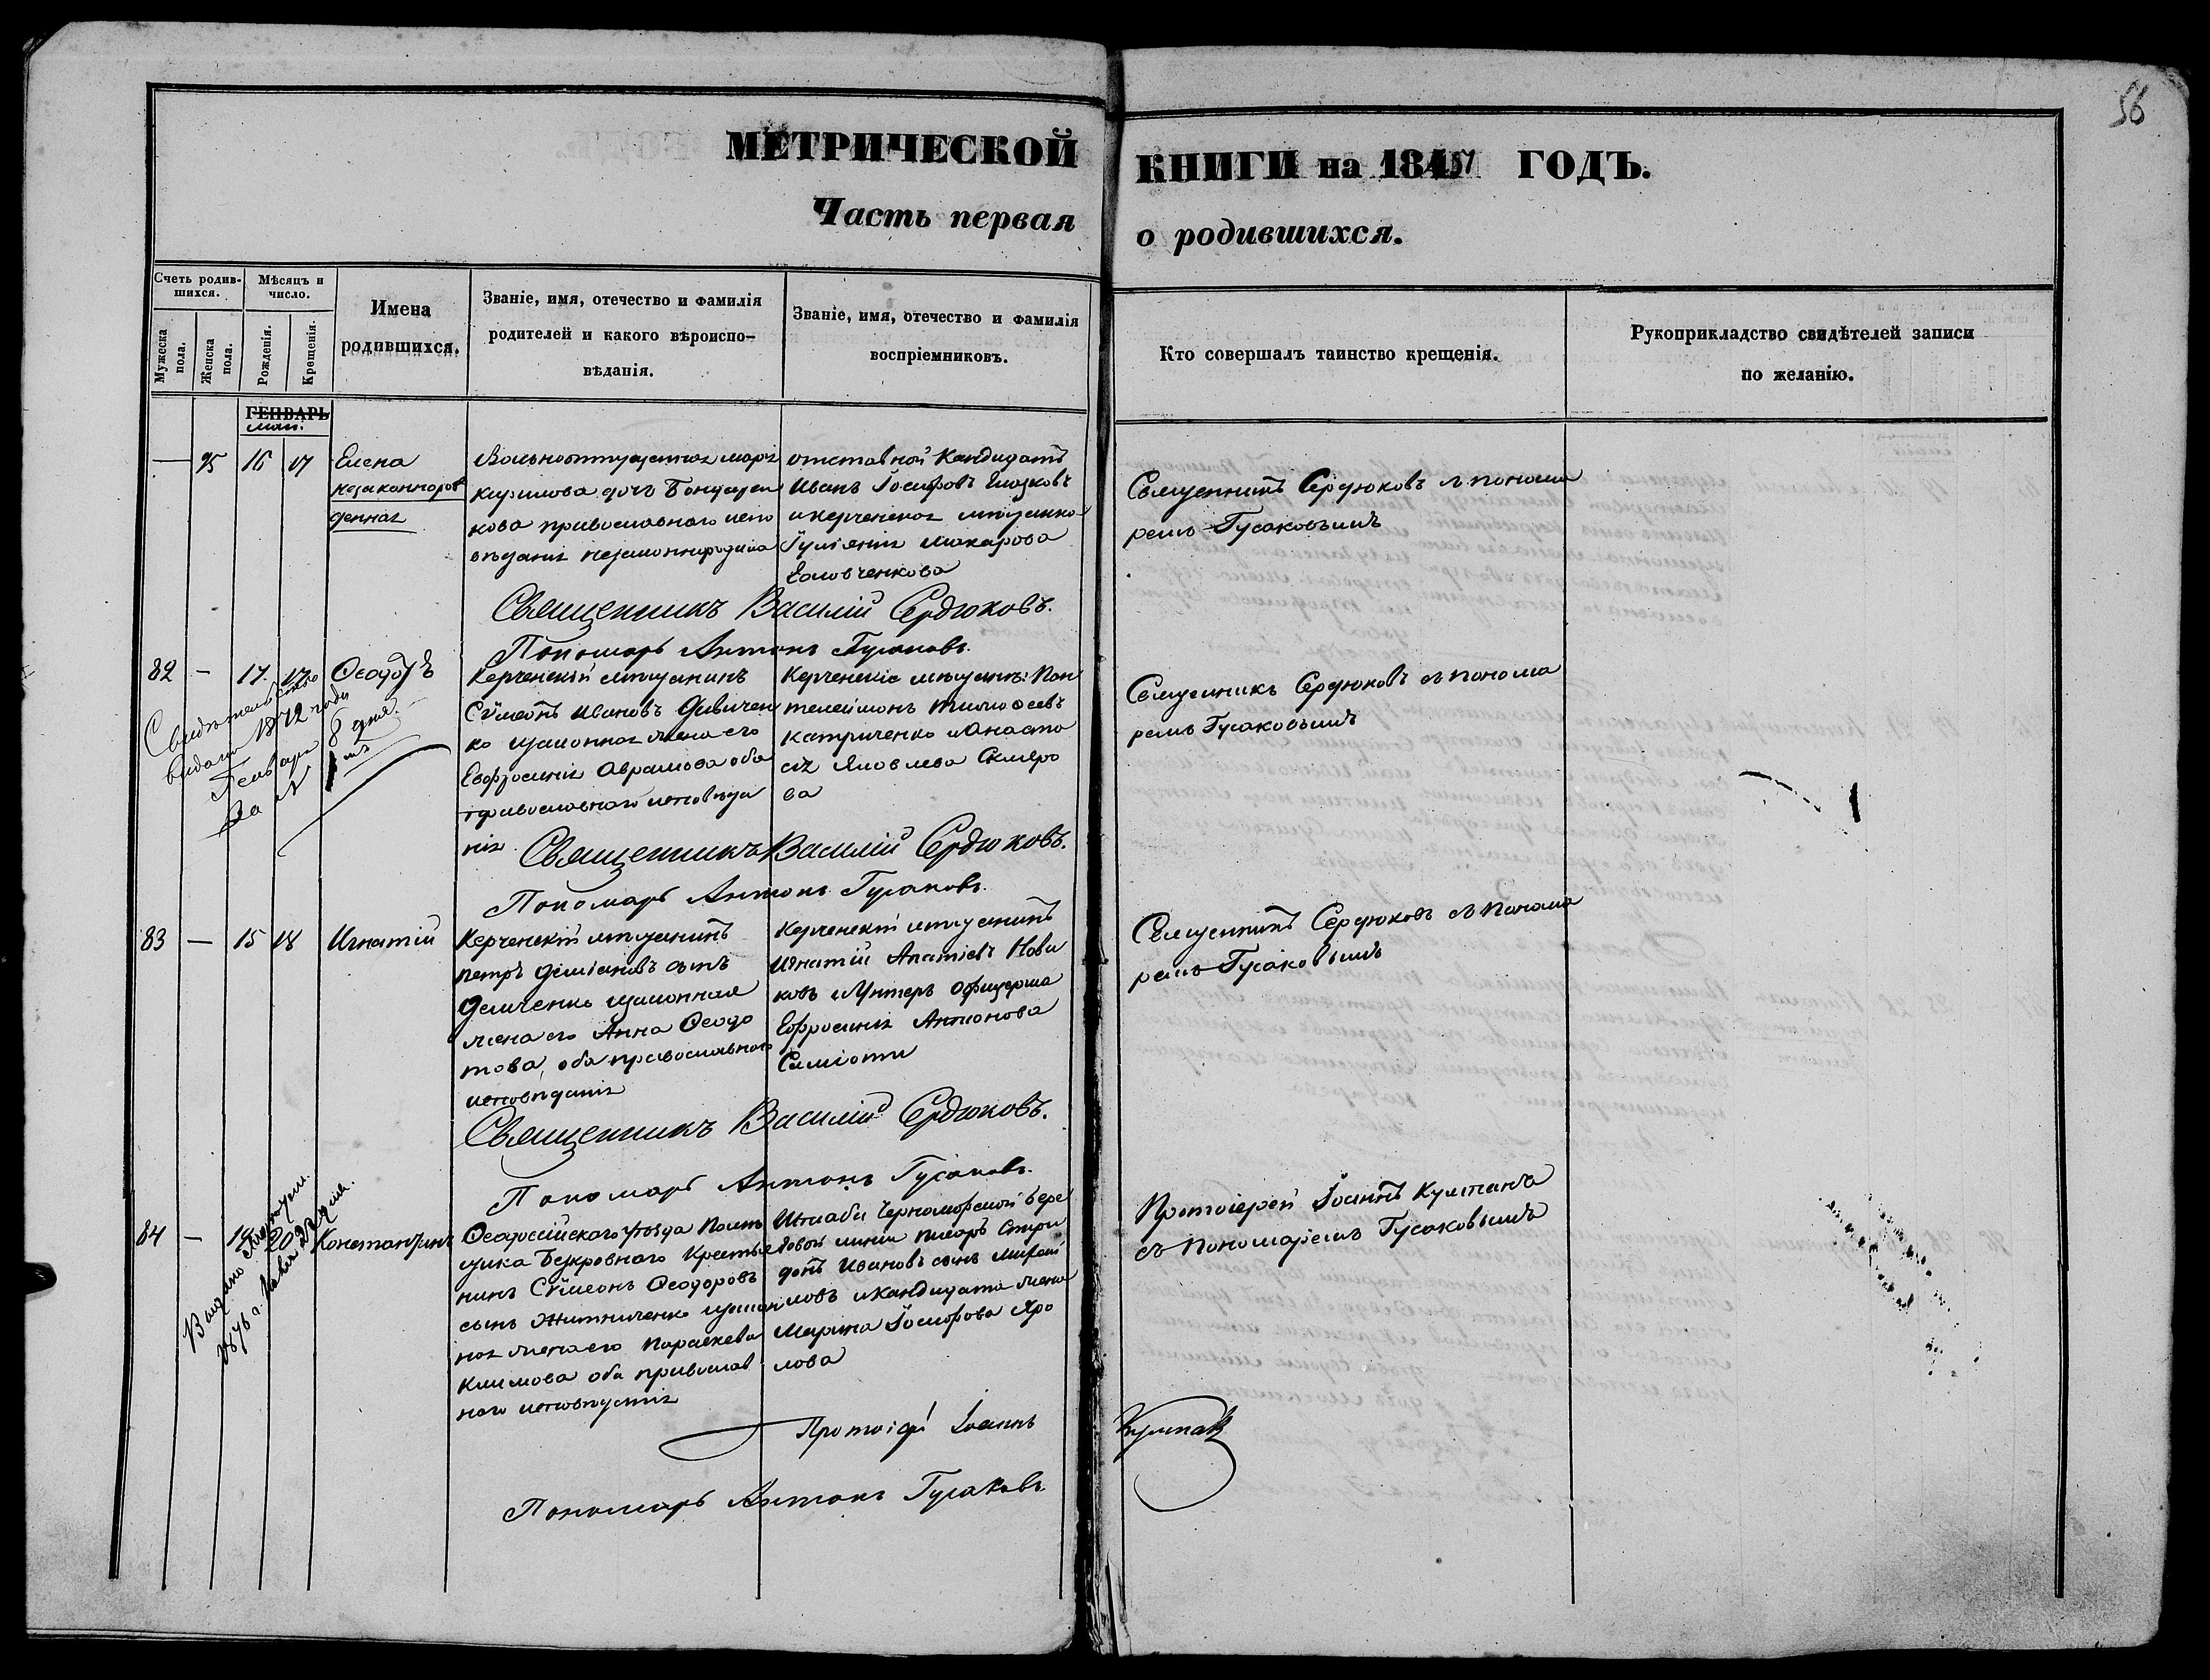 56
МЕТРИЧЕСКОЙ КНИГИ на 1857 ГОДЪ.
Часть первая о родившихся.
Счетъ родив-
шихся.
Мужеска пола.
Женска пола.
Мѣсяцъ и
число.
Рожденія.
Крещенія.
Имена
родившихся.
Званіе, имя, отечество и фамилія
родителей и какого вѣроиспо-
вѣданія.
Званіе, имя, отечество и фамилія
воспріемниковъ.
Кто совершалъ таинство крещенія.
Рукоприкладство свидѣтелей записи
по желанію.
ГЕНВАРЬ
маи.
— 95 16 17
Елена
незаконнорож
денная
Вольноотпущенная Марія
Кирилова дочь
кова православнаго испо
вѣданія
отставной Кандидатъ
Иванъ Іосифовъ
и керченская мѣщанка
Макарова
Еловченкова
Священникъ Сердюковъ съ понома
ремъ Гусаковымъ
Священникъ Василій Сердюковъ.
Пономарь Антонъ Гусаковъ.
82 — 17. 17.
Ѳеодоръ
Свидѣтельство
выдано 1872 года
Генваря 8 дня
За №
Керченскій мѣщанинъ
Сѵмеонъ Ивановъ
ко законная жена его
Евфросинія Аврамова оба
православнаго исповѣда
нія
Керченскіе мѣщане: Пан
телеймонъ Тимоѳеевъ
Катриченко и Анаста
сія Яковлева Скляро
ва
Священникъ Сердюковъ съ понома
ремъ Гусаковымъ
Священникъ Василій Сердюковъ.
Пономарь Антонъ Гусаковъ.
83 — 15 18
Игнатій
Керченскій мѣщанинъ
Петръ Деміановъ сынъ
Демченко законная
жена его Анна Ѳеодо
това, оба православнаго
исповѣданія
Керченскій мѣщанинъ
Игнатій Ипатіевъ Нови
ковъ и Унтеръ офицерша
Ефросинія Антонова
Священникъ Сердюковъ съ понома
ремъ Гусаковымъ
Священникъ Василій Сердюковъ.
Пономарь Антонъ Гусаковъ.
84 — 18 20
Константинъ
Выдано
1876 г.
Ѳеодосійскаго уѣзда Помѣ
щика Безкровнаго Крестья
нинъ Сѵмеонъ Ѳеодоровъ
сынъ Житниченко закон
ная жена его Параскева
Климова оба православ
наго исповѣданія
Штаба Черноморской бере
говой линіи писарь Спири
донъ Ивановъ сынъ
ловъ и кандидата жена
Марина Іосифова Хро
лова
Протоіерей Іоаннъ Кумпанъ
съ пономаремъ Гусаковымъ
Протоіерей Іоаннъ Кумпанъ
Пономарь Антонъ Гусаковъ